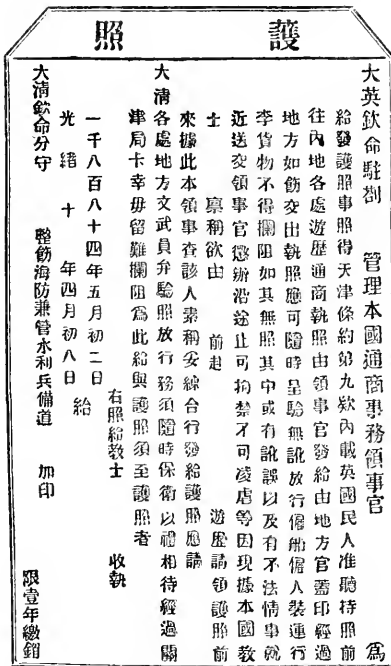 護照
大英欽命駐劄 管理本國通商事務領事官 為
給發護照事照得天津條約第九欵內載英國民人准聽持照前
往內地各處遊歷通商執照由領事官發給由地方官蓋印經過
地方如飭交出執照應可隨時呈驗無訛放行僱船僱人裝運行
李貨物不得攔阻如其無照其中或有訛誤以及有不法情事就
近送交領事官懲辦沿途止可拘禁不可凌虐等因現據本國教
士 稟稱欲由 前赴 遊歷請領護照前
來據此本領事查該人素稱妥練合行發給護照應請
大清各處地方文武員弁驗照放行務須隨時保衛以禮相待經過關
津局卡幸毋留難攔阻為此給與護照須至護照者
右照給教士 收執
一千八百八十四年五月初二日
光緒十年四月初八日 給
大清欽命分守 整飭海防兼管水利兵備道 加印
限壹年繳銷